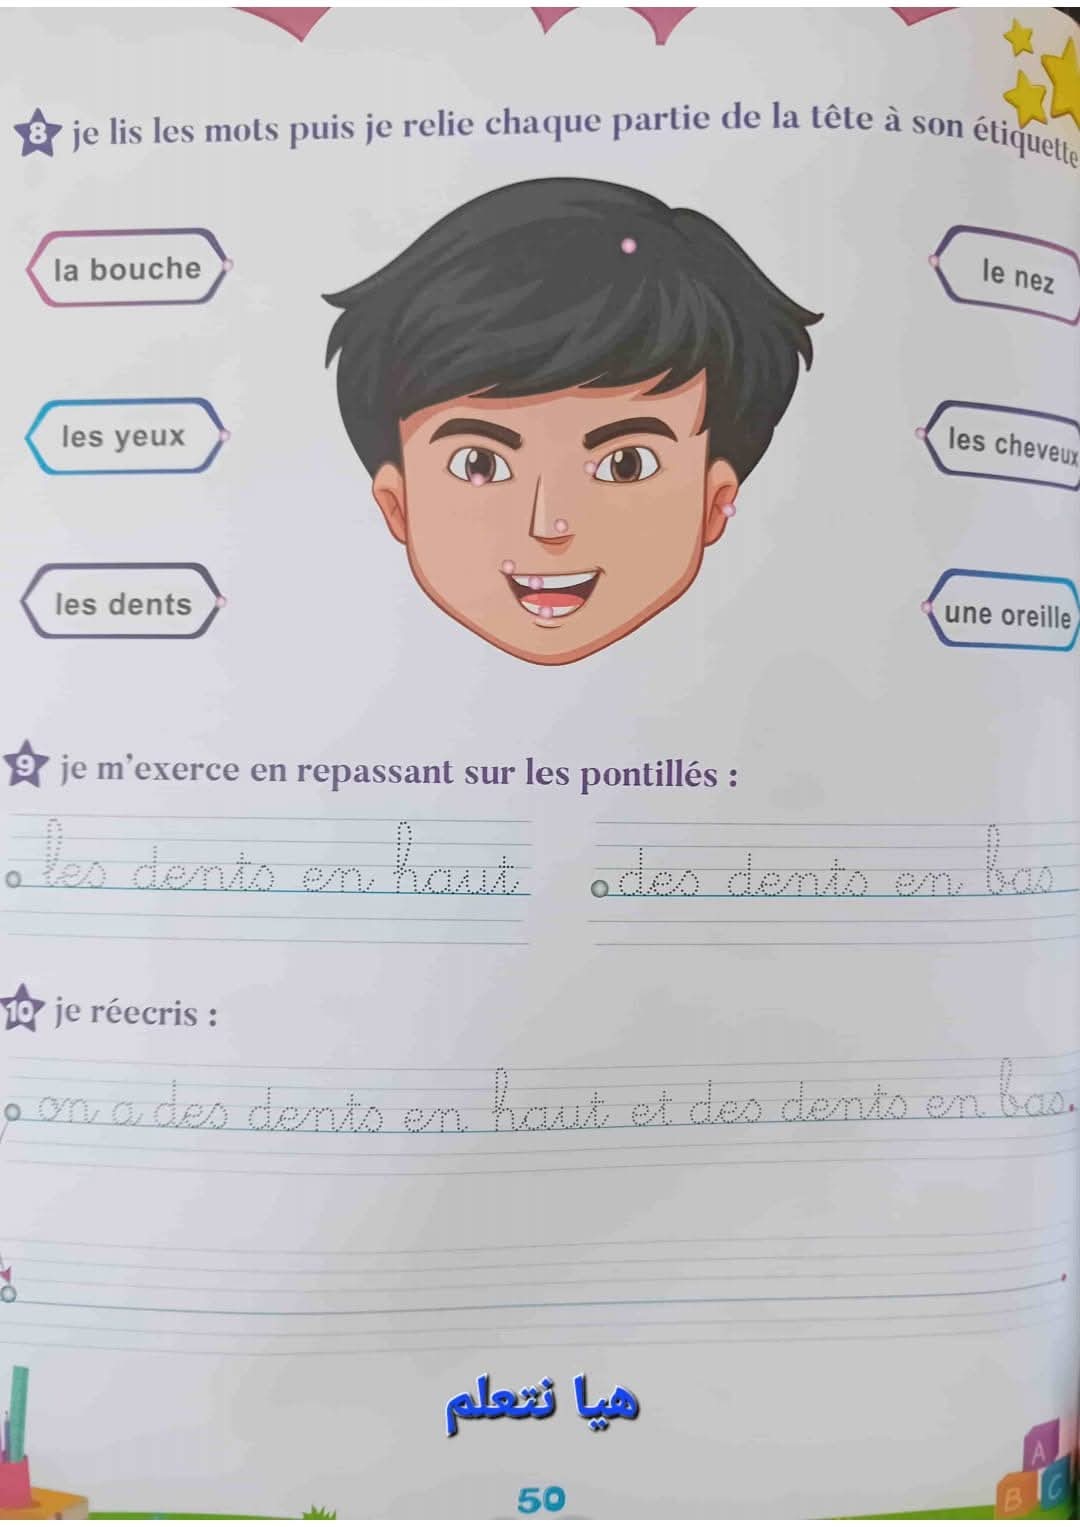 8 je lis les mots puis je relie chaque partie de la tête à son étiquette
la bouche
le nez
les yeux
les cheveux
les dents
une oreille
9 je m'exerce en repassant sur les pontillés :
les dents en haut
des dents en bas
10 je réecris :
on a des dents en haut et des dents en bas.
هيا نتعلم
50
A
B C